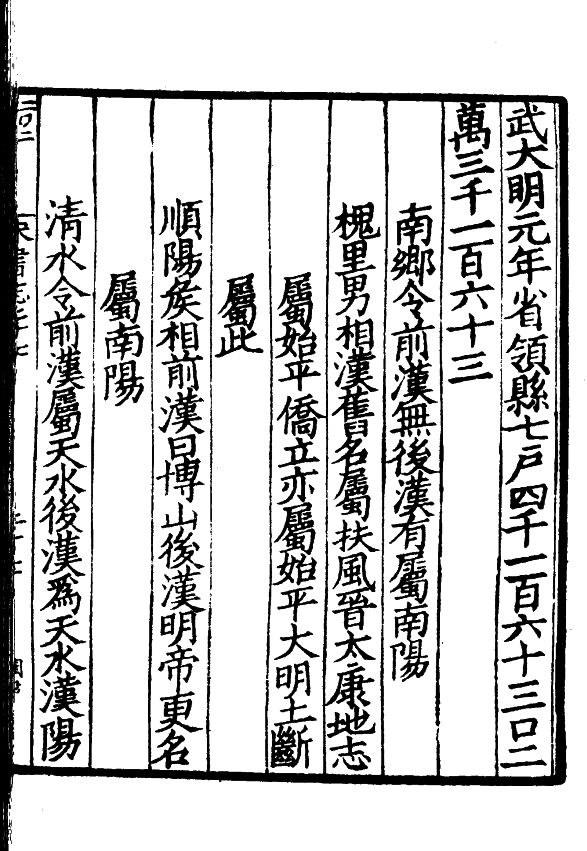 武大明元年省領縣七戸四千一百六十三口二
萬三千一百六十三
南鄉令前漢無後漢有屬南陽
槐里男相漢舊名屬扶風晉太康地志
屬始平僑立亦屬始平大明土斷
屬此
順陽矦相前漢曰博山後漢明帝更名
屬南陽
清水令前漢屬天水後漢爲天水漢陽